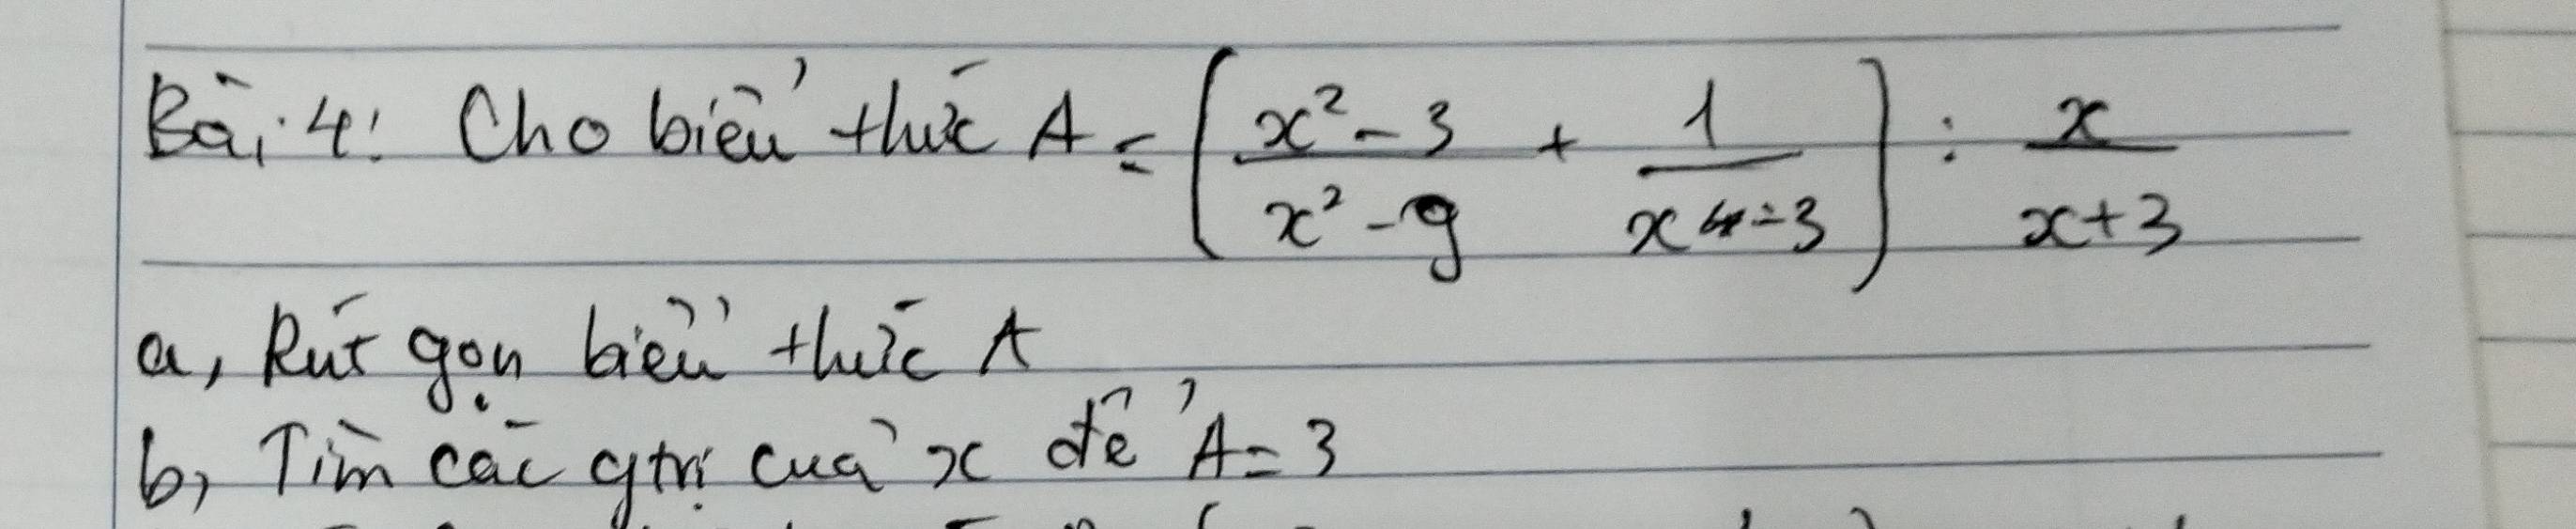 Bài 4: Cho biểu thức A = [ (x² - 3)/(x² - 9) + 1/(x - 3) ] : x/(x+3)
a, Rút gọn biểu thức A
b, Tìm các gtrị của x để A = 3